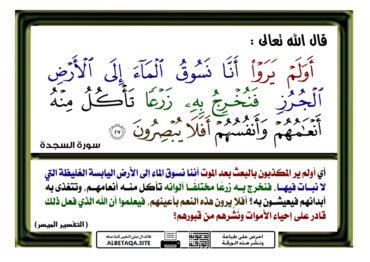 قال الله تعالى :
أَوَلَمْ يَرَوْا۟ أَنَّا نَسُوقُ ٱلْمَآءَ إِلَى ٱلْأَرْضِ
ٱلْجُرُزِ فَنُخْرِجُ بِهِۦ زَرْعًا تَأْكُلُ مِنْهُ
أَنْعَٰمُهُمْ وَأَنفُسُهُمْ أَفَلَا يُبْصِرُونَ ٢٧
سورة السجدة
أي أولم ير المكذبون بالبعث بعد الموت أننا نسوق الماء إلى الأرض اليابسة الغليظة التي
لا نبات فيها، فنخرج به زرعًا مختلفًا ألوانه تأكل منه أنعامهم, وتتغذى به
أبدانهم فيعيشون به؟ أفلا يرون هذه النعم بأعينهم, فيعلموا أن الله الذي فعل ذلك
قادر على إحياء الأموات ونشرهم من قبورهم؟
(التفسير الميسر)
احرص على طباعة
ونشر هذه الورقة
ALBETAQA.SITE